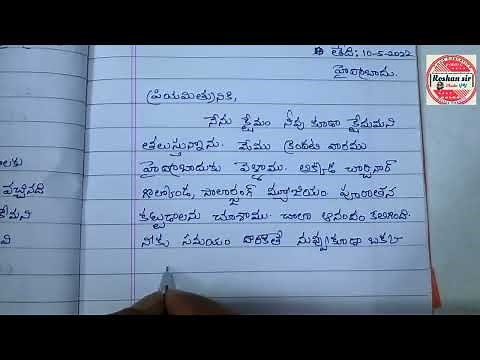 తేది: 10-5-2022
హైద్రాబాదు.
Roshan sir
ప్రియమిత్రునికి,
నేను క్షేమం నీవు కూడా క్షేమమని
తలుస్తున్నాను. మేము కిందటి వారము
హైద్రాబాదుకు వెళ్ళాము. అక్కడ చార్మినార్
గొల్కొండ, సాలార్జంగ్ మ్యూజియం పురాతన
కట్టడాలను చూశాము. చాలా ఆనందం కలిగింది.
నీకు సమయం దొరికితే నువ్వుకూడా ఒకసా
లకు
వచ్చినది